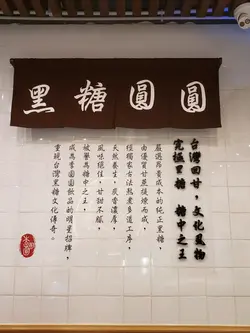 黑糖圓圓
台灣回甘，文化風物
究極黑糖 糖中之王
嚴選昂貴成本的純正黑糖，
由優質甘蔗提煉而成，
經獨家古法熬煮多道工序，
天然養生，炭香濃厚，
風味絕佳，甘甜不膩，
被譽為糖中之王，
成為圓圓飲品的明星招牌，
重現台灣黑糖文化傳奇。